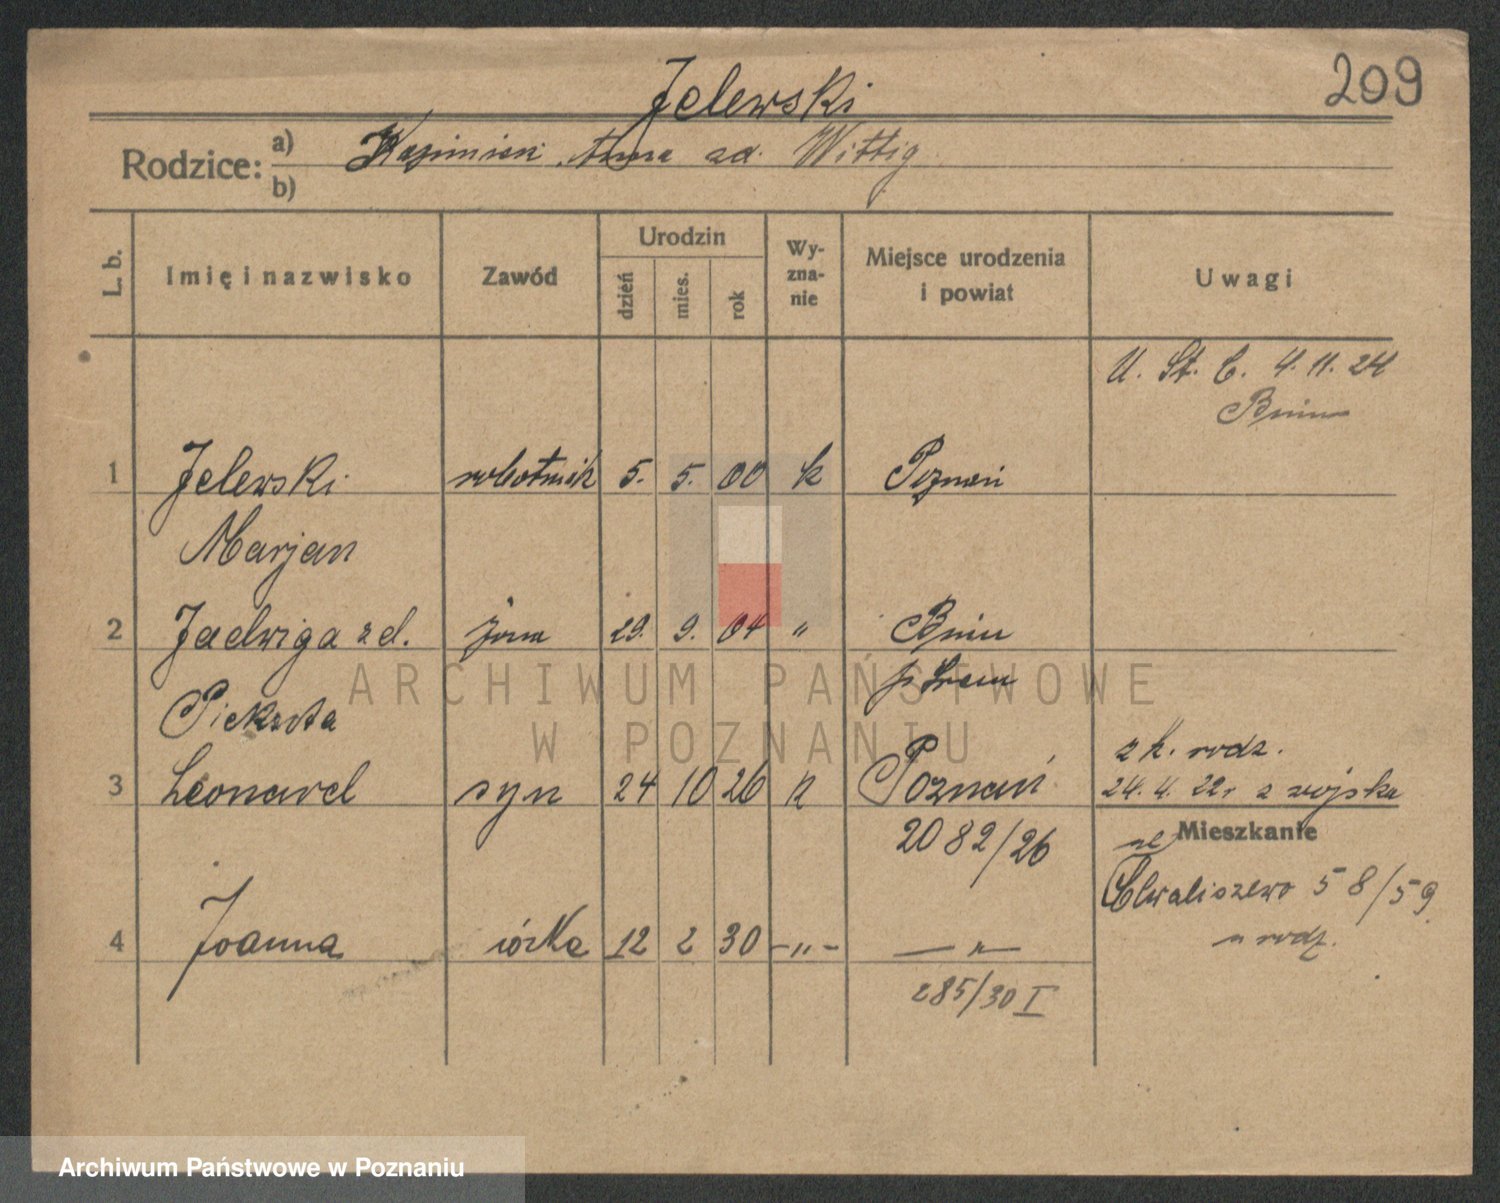 209
Jelewski
Rodzice: a) Kazimierz, Anna zd. Wittig
b)
L. b. Imię i nazwisko Zawód Urodzin dzień mies. rok Wyzna-nie Miejsce urodzenia i powiat Uwagi
U. St. C. 4. 11. 24
Bnin
1 Jelewski robotnik 5. 5. 00 k Poznań
Marjan
2 Jadwiga zd. żona 29. 9. 04 " Bnin
p Śrem
Piekzota
z k. rodz.
3 Leonard syn 24 10 26 k Poznań 24. 4. 22r z wojska
2082/26
Mieszkanie
Chwaliszewo 58/59
u rodz.
4 Joanna córka 12 2 30 -"- — " —
285/30 I
ARCHIWUM PAŃSTWOWE
W POZNANIU
Archiwum Państwowe w Poznaniu